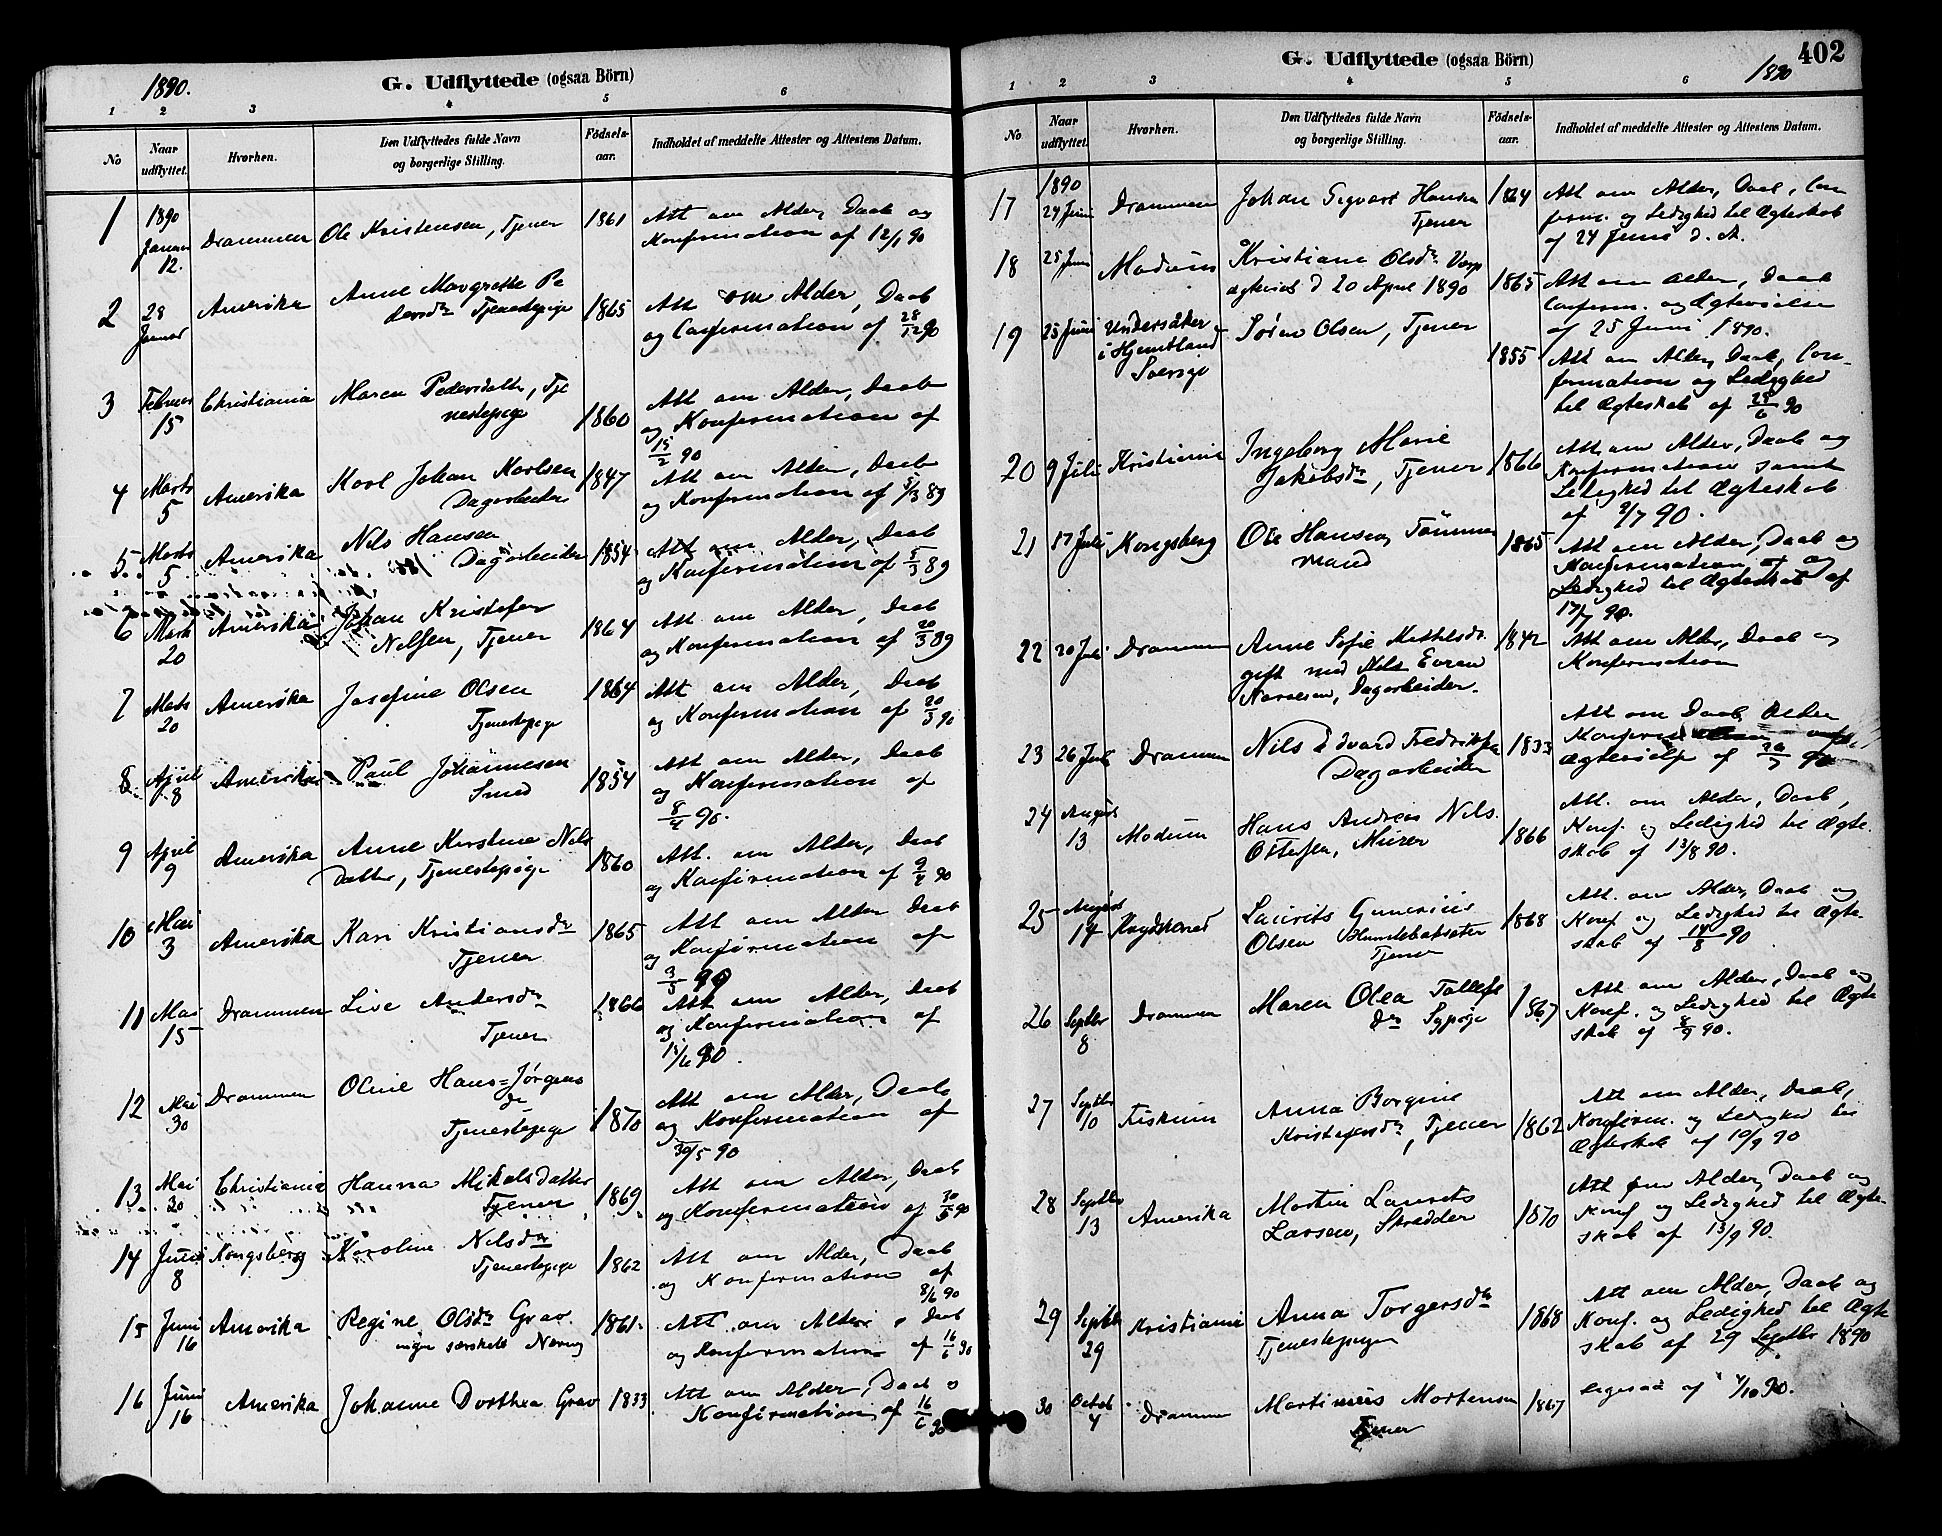 1890.
G. Udflyttede (ogsaa Börn)
1 2 3 4 5 6
No
Naar udflyttet.
Hvorhen.
Den Udflyttedes fulde Navn
og borgerlige Stilling.
Födsels-
aar.
Indholdet af meddelte Attester og Attestens Datum.
1 1890 Januar 12. Drammen Ole Kristensen, Tjener 1861 Att om Alder, Daab og
Konfirmation af 12/1 90
2 28 Januar Amerika Anne Margrethe Pe
dersdr Tjenestepige 1865 Att om Alder, Daab
og Confirmation af 28/12 90
3 Februar 15 Christiania Maren Pedersdatter, Tje
nestepige 1860 Att om Alder, Daab
og Konfirmation af
15/2 90
4 Marts 5 Amerika Karl Johan Karlsen
Dagarbeider 1847 Att om Alder, Daab
og Konfirmation af 5/3 89
5 Marts 5 Amerika Nils Hansen
Dagarbeider 1854 Att om Alder, Daab
og Konfirmation af 5/3 89
6 Marts 20 Amerika Johan Kristofer
Nilssen, Tjener 1864 Att om Alder, Daab
og Konfirmation af 20/3 89
7 Marts 20 Amerika Josefine Olsen
Tjenestepige 1864 Att om Alder, Daab
og Konfirmation af 20/3 90
8 April 8 Amerika Paul Johannesen
Smed 1854 Att om Alder, Daab
og Konfirmation af
8/4 90.
9 April 9 Amerika Anne Kirstine Nils
Datter, Tjenestepige 1860 Att. om Alder, Daab
og Konfirmation af 9/4 90
10 Mai 3 Amerika Kari Kristiansdr
Tjener 1865 Att om Alder Daab
og Konfirmation af
3/5 90
11 Mai 15 Drammen Live Andersdr
Tjener 1866 Att om Alder, Daab
og Konfirmation af
15/6 90.
12 Mai 30 Drammen Oline Hans=Jørgens
dr
Tjenestepige 1870 Att om Alder, Daab
og Konfirmation af
30/5 90
13 Mai 30 Christiania Hanna Mikalsdatter
Tjener 1869 Att om Alder, Daab
og Konfirmation af 30/5 90
14 Juni 8 Kongsberg Karoline Nilsdr
Tjenestepige 1862 Att om Alder, Daab
og Konfirmation af
8/6 90
15 Juni 16 Amerika Regine Olsdr Grav
ingen særskilt Næring 1861 Att om Alder, Daab
og Konfirmation af 16/6 90
16 Juni 16 Amerika Johanne Dorthea Grav 1833 Att om Alder, Daab o
Konfirmation af 16/6 90
402
G. Udflyttede (ogsaa Börn)
1890
1 2 3 4 5 6
No
Naar
udflyttet.
Hvorhen.
Den Udflyttedes fulde Navn
og borgerlige Stilling.
Födsels-
aar.
Indholdet af meddelte Attester og Attestens Datum.
17 1890 24 Juni Drammen Johan Sigvart Hansen
Tjener 1864 Att om Alder, Daab, Con
firm. og Ledighed til Ægteskab
af 24 Juni d. A.
18 25 Juni Modum Kristiane Olsdr
ægteviet d 20 April 1890 1865 Att om Alder, Daab
Conferm. og Ægtevielse
af 25 Juni 1890.
19 25 Juni Undersåker
i Hjemtland
Sverige Søren Olsen, Tjener 1855 Att om Alder, Daab, Con-
firmation og Ledighed
til Ægteskab af 25/6 90
20 9 Juli Kristiania Ingeborg Marie
Jakobsdr, Tjener 1866 Att om Alder, Daab og
Konfirmation samt
Ledighed til Ægteskab
af 9/7 90.
21 17 Juli Kongsberg Ole Hansen, Tømmer
mand 1865 Att om Alder, Daab og
Konfirmation og
Ledighed til Ægteskab af
17/7 90.
22 20 Juli Drammen Anne Sofie
gift med Nils
Dagarbeider. 1842 Att om Alder, Daab og
Konfirmation
23 26 Juli Drammen Nils Edvard Fredriksen
Dagarbeider 1833 Att om Daab Alder
Konfirm
Ægtevielse af 26/7 90
24 August 13 Modum Hans Andreas Nils.
Ottersen, Murer 1866 Att. om Alder, Daab,
Konf. og Ledighed til Ægte-
skab af 13/8 90.
25 August 14 Krydsherred Laurits Gunerius
Olsen
Tjener 1868 Att. om Alder, Daab og
Konf og Ledighed til Ægte-
skab af 14/8 90
26 Septbr 8 Drammen Maren Olea Tollefs
dr Sypige 1867 Att om Alder, Daab og
Konf. og Ledighed til Ægte
skab af 8/9 90.
27 Septbr 10 Fiskum Anna Borgine
Kristofersdr, Tjener 1862 Att om Alder, Daab,
Konfirm. og Ledighed til
Ægteskab af 10/9 90
28 Septbr 13 Amerika Martin Laurits
Larsen, Skredder 1870 Att om Alder, Daab og
Konf og Ledighed til Ægte-
skab af 13/9 90.
29 Septbr 29 Kristiania Anna Torgersdr
Tjenestepige 1868 Att om Alder, Daab og
Konf. og Ledighed til Ægte
skab af 29 Septbr 1890
30 Octob 4 Drammen Martinius Mortensen
Tjener 1867 ligesaa af 4/10 90.